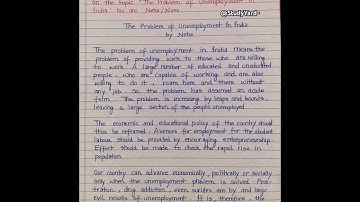 on the topic "The Problem of Unemployment in
India" You are Neha/Nimi
@StudyYard-
The Problem of Unemployment In India
by Neha
The problem of unemployment in India means the
problem of providing work to those who are willing
to work. A large number of educated and uneducated
people, who are capable of working and are also
willing to do it, roam here and there without
any job. So the problem has assumed an acute
form. The problem is increasing by leaps and bounds,
leaving a large section of the people unemployed.
The economic and educational policy of the country should
thus be reframed. Avenues for employment for the abundant
labour should be provided by encouraging entrepreneurship.
Effort should be made to check the rapid rise in
population.
Our country can advance economically, politically or socially
only when the unemployment problem is solved. Frus-
tration, drug addiction, even suicides are by and large
evil results of unemployment. It is, therefore, the